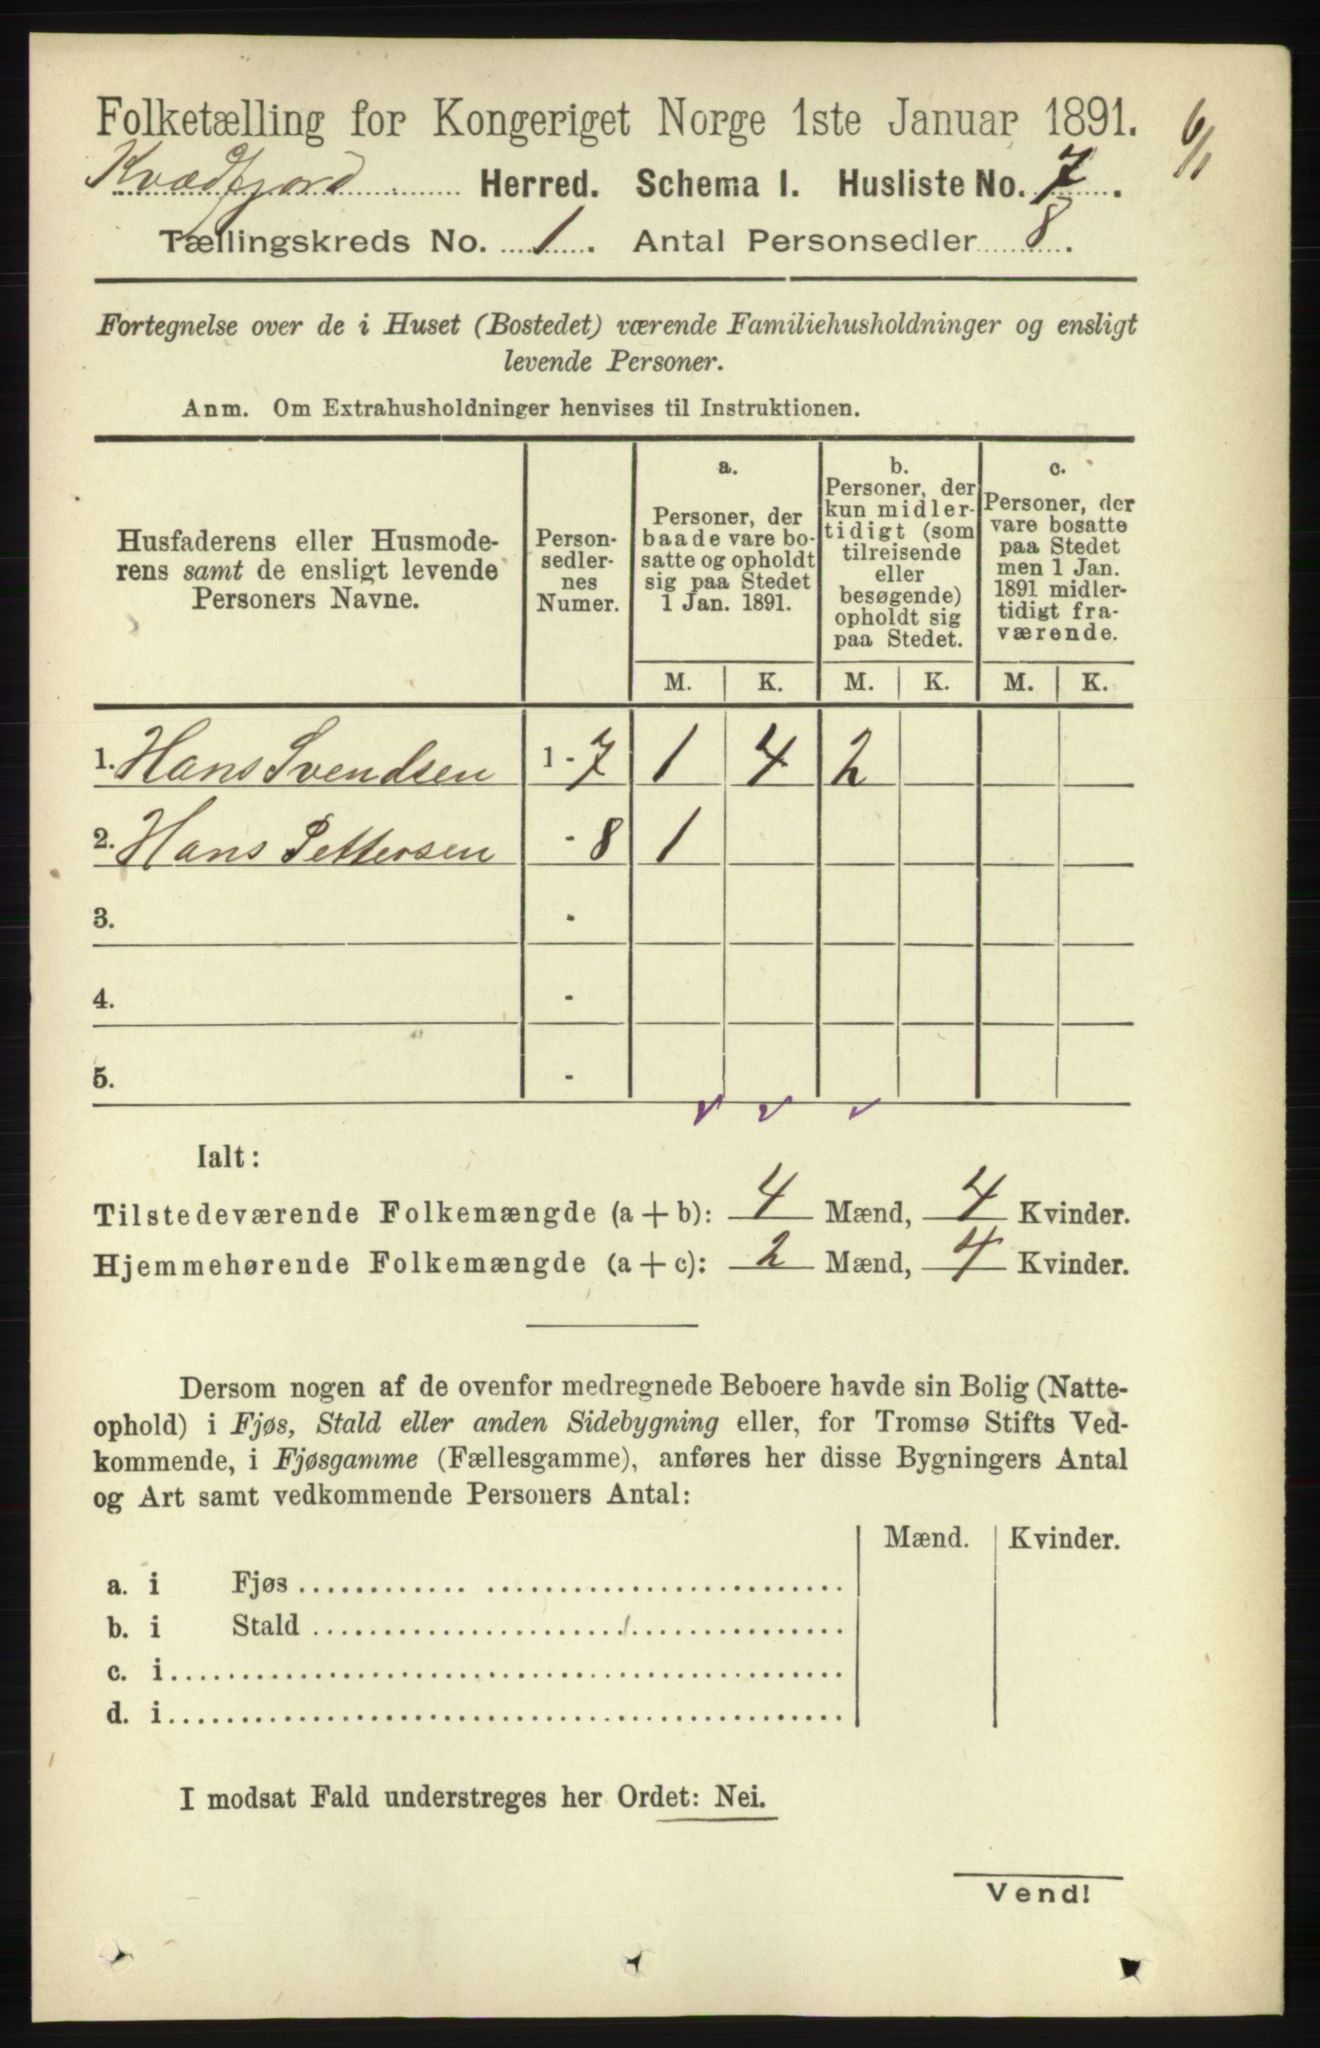 Folketælling for Kongeriget Norge 1ste Januar 1891.
6/1
Kvædfjord Herred. Schema I. Husliste No. 7.
Tællingskreds No. 1. Antal Personsedler 8.
Fortegnelse over de i Huset (Bostedet) værende Familiehusholdninger og ensligt
levende Personer.
Anm. Om Extrahusholdninger henvises til Instruktionen.
Husfaderens eller Husmode-
rens samt de ensligt levende
Personers Navne.
Person-
sedler-
nes
Numer.
a.
Personer, der
baade vare bo-
satte og opholdt
sig paa Stedet
1 Jan. 1891.
b.
Personer, der
kun midler-
tidigt (som
tilreisende
eller
besøgende)
opholdt sig
paa Stedet.
c.
Personer, der
vare bosatte
paa Stedet
men 1 Jan.
1891 midler-
tidigt fra-
værende.
M. K. M. K. M. K.
1. Hans Svendsen 1 - 7 1 4 2
2. Hans Pettersen - 8 1
3. -
4. -
5. -
Ialt:
Tilstedeværende Folkemængde (a + b): 4 Mænd, 4 Kvinder.
Hjemmehørende Folkemængde (a + c): 2 Mænd, 4 Kvinder.
Dersom nogen af de ovenfor medregnede Beboere havde sin Bolig (Natte-
ophold) i Fjøs, Stald eller anden Sidebygning eller, for Tromsø Stifts Ved-
kommende, i Fjøsgamme (Fællesgamme), anføres her disse Bygningers Antal
og Art samt vedkommende Personers Antal:
Mænd. Kvinder.
a. i Fjøs
b. i Stald
c. i
d. i
I modsat Fald understreges her Ordet: Nei.
Vend!